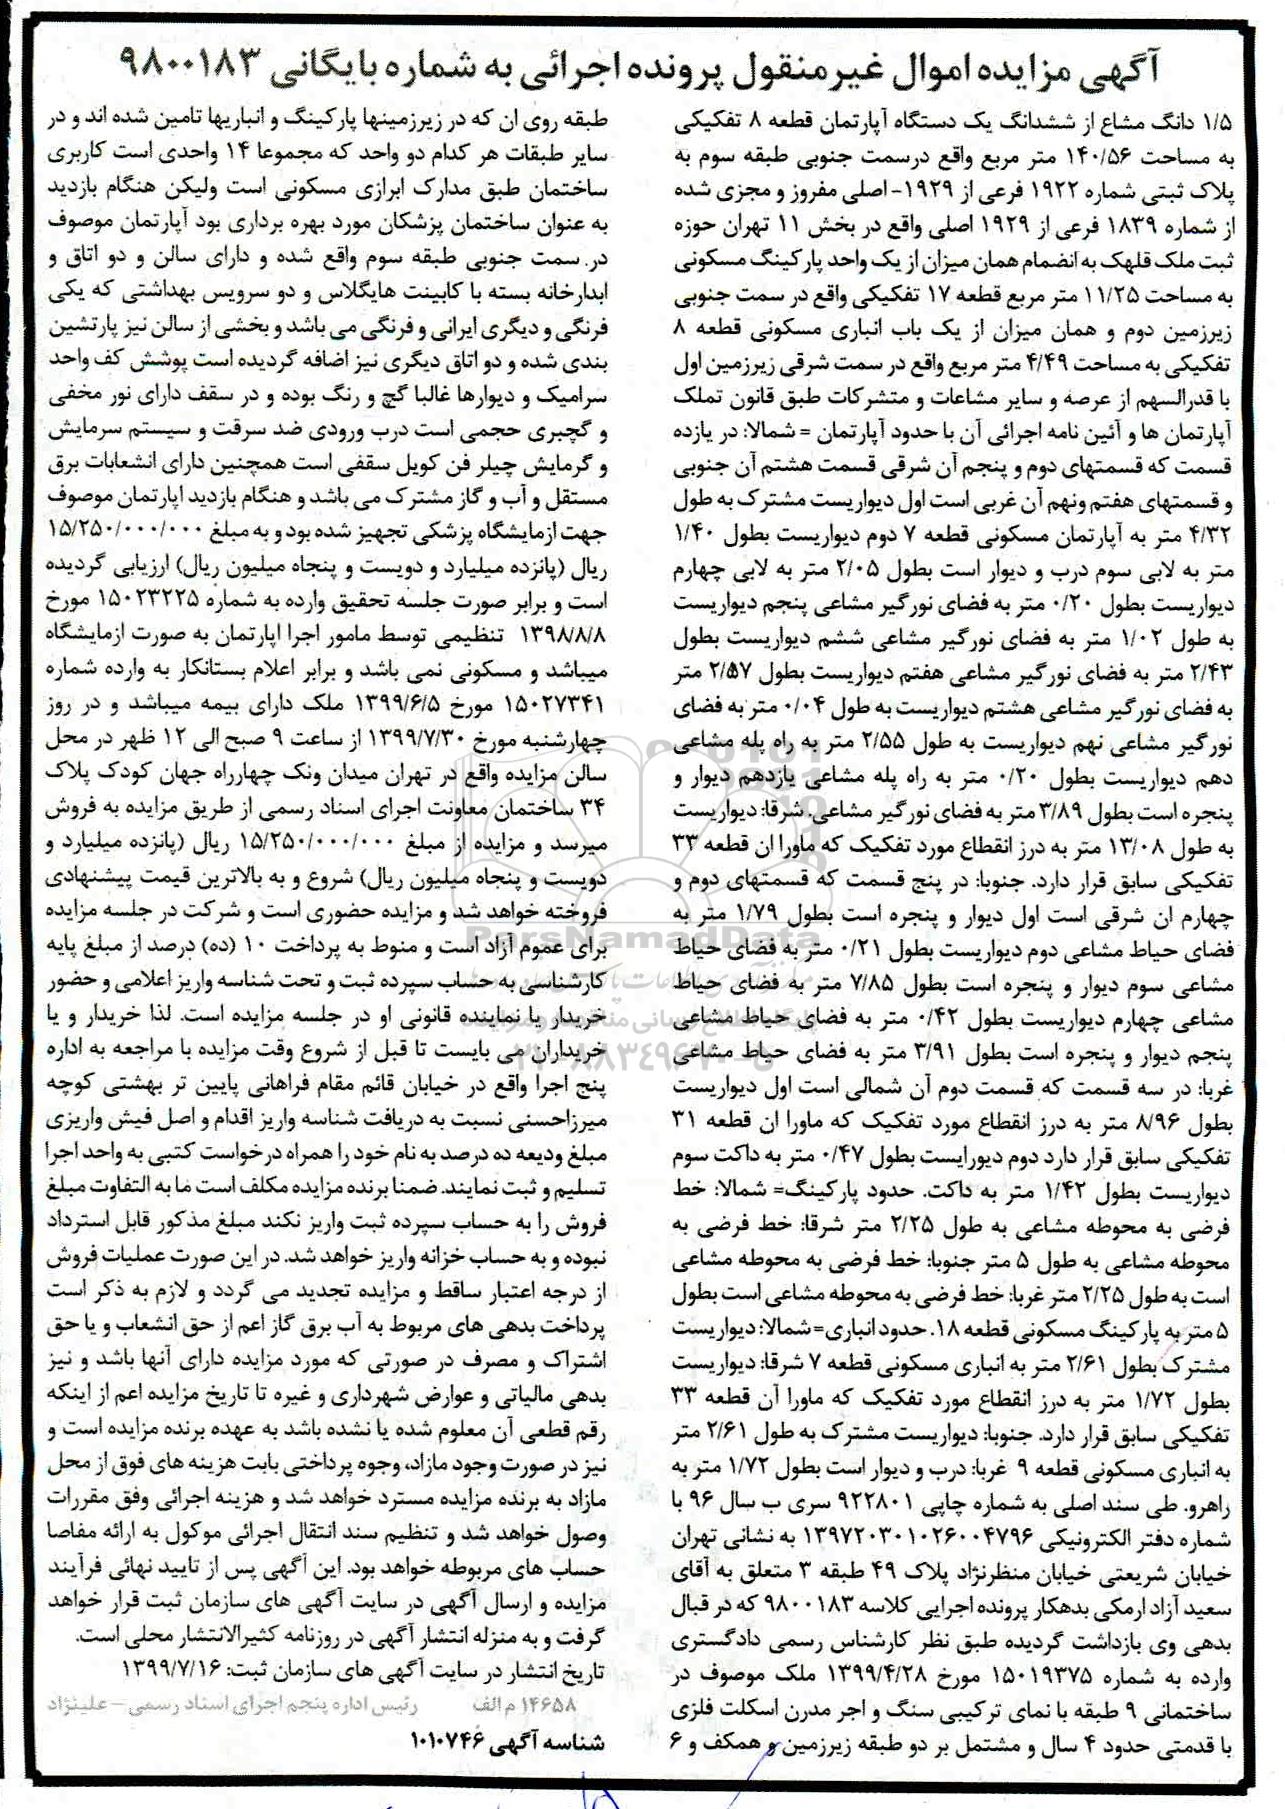 آگهی مزایده اموال غیرمنقول پرونده اجرائی به شماره بایگانی ۹۸۰۰۱۸۳
۱/۵ دانگ مشاع از ششدانگ یک دستگاه آپارتمان قطعه ۸ تفکیکی
به مساحت ۱۴۰/۵۶ متر مربع واقع درسمت جنوبی طبقه سوم به
پلاک ثبتی شماره ۱۹۲۲ فرعی از ۱۹۲۹- اصلی مفروز و مجزی شده
از شماره ۱۸۳۹ فرعی از ۱۹۲۹ اصلی واقع در بخش ۱۱ تهران حوزه
ثبت ملک قلهک به انضمام همان میزان از یک واحد پارکینگ مسکونی
به مساحت ۱۱/۲۵ متر مربع قطعه ۱۷ تفکیکی واقع در سمت جنوبی
زیرزمین دوم و همان میزان از یک باب انباری مسکونی قطعه ۸
تفکیکی به مساحت ۴/۴۹ متر مربع واقع در سمت شرقی زیرزمین اول
با قدرالسهم از عرصه و سایر مشاعات و متشرکات طبق قانون تملک
آپارتمان ها و آئین نامه اجرائی آن با حدود آپارتمان = شمالا: در یازده
قسمت که قسمتهای دوم و پنجم آن شرقی قسمت هشتم آن جنوبی
و قسمتهای هفتم ونهم آن غربی است اول دیواریست مشترک به طول
۴/۳۲ متر به آپارتمان مسکونی قطعه ۷ دوم دیواریست بطول ۱/۴۰
متر به لابی سوم درب و دیوار است بطول ۲/۰۵ متر به لابی چهارم
دیواریست بطول ۰/۲۰ متر به فضای نورگیر مشاعی پنجم دیواریست
به طول ۱/۰۲ متر به فضای نورگیر مشاعی ششم دیواریست بطول
۲/۴۳ متر به فضای نورگیر مشاعی هفتم دیواریست بطول ۲/۵۷ متر
به فضای نورگیر مشاعی هشتم دیواریست به طول ۰/۰۴ متر به فضای
نورگیر مشاعی نهم دیواریست به طول ۲/۵۵ متر به راه پله مشاعی
دهم دیواریست بطول ۰/۲۰ متر به راه پله مشاعی یازدهم دیوار و
پنجره است بطول ۳/۸۹ متر به فضای نورگیر مشاعی. شرقا: دیواریست
به طول ۱۳/۰۸ متر به درز انقطاع مورد تفکیک که ماورا ان قطعه ۳۳
تفکیکی سابق قرار دارد. جنوبا: در پنج قسمت که قسمتهای دوم و
چهارم ان شرقی است اول دیوار و پنجره است بطول ۱/۷۹ متر به
فضای حیاط مشاعی دوم دیواریست بطول ۰/۲۱ متر به فضای حیاط
مشاعی سوم دیوار و پنجره است بطول ۷/۸۵ متر به فضای حیاط
مشاعی چهارم دیواریست بطول ۰/۴۲ متر به فضای حیاط مشاعی
پنجم دیوار و پنجره است بطول ۳/۹۱ متر به فضای حیاط مشاعی
غربا: در سه قسمت که قسمت دوم آن شمالی است اول دیواریست
بطول ۸/۹۶ متر به درز انقطاع مورد تفکیک که ماورا ان قطعه ۳۱
تفکیکی سابق قرار دارد دوم دیورایست بطول ۰/۴۷ متر به داکت سوم
دیواریست بطول ۱/۴۲ متر به داکت. حدود پارکینگ= شمالا: خط
فرضی به محوطه مشاعی به طول ۲/۲۵ متر شرقا: خط فرضی به
محوطه مشاعی به طول ۵ متر جنوبا: خط فرضی به محوطه مشاعی
است به طول ۲/۲۵ متر غربا: خط فرضی به محوطه مشاعی است بطول
۵ متر به پارکینگ مسکونی قطعه ۱۸. حدود انباری=شمالا: دیواریست
مشترک بطول ۲/۶۱ متر به انباری مسکونی قطعه ۷ شرقا: دیواریست
بطول ۱/۷۲ متر به درز انقطاع مورد تفکیک که ماورا آن قطعه ۳۳
تفکیکی سابق قرار دارد. جنوبا: دیواریست مشترک به طول ۲/۶۱ متر
به انباری مسکونی قطعه ۹ غربا: درب و دیوار است بطول ۱/۷۲ متر به
راهرو. طی سند اصلی به شماره چاپی ۹۲۲۸۰۱ سری ب سال ۹۶ با
شماره دفتر الکترونیکی ۱۳۹۷۲۰۳۰۱۰۲۶۰۰۴۷۹۶ به نشانی تهران
خیابان شریعتی خیابان منظرنژاد پلاک ۴۹ طبقه ۳ متعلق به آقای
سعید آزاد ارمکی بدهکار پرونده اجرایی کلاسه ۹۸۰۰۱۸۳ که در قبال
بدهی وی بازداشت گردیده طبق نظر کارشناس رسمی دادگستری
وارده به شماره ۱۵۰۱۹۳۷۵ مورخ ۱۳۹۹/۴/۲۸ ملک موصوف در
ساختمانی ۹ طبقه با نمای ترکیبی سنگ و اجر مدرن اسکلت فلزی
با قدمتی حدود ۴ سال و مشتمل بر دو طبقه زیرزمین و همکف و ۶
طبقه روی ان که در زیرزمینها پارکینگ و انباریها تامین شده اند و در
سایر طبقات هر کدام دو واحد که مجموعا ۱۴ واحدی است کاربری
ساختمان طبق مدارک ابرازی مسکونی است ولیکن هنگام بازدید
به عنوان ساختمان پزشکان مورد بهره برداری بود آپارتمان موصوف
در سمت جنوبی طبقه سوم واقع شده و دارای سالن و دو اتاق و
ابدارخانه بسته با کابینت هایگلاس و دو سرویس بهداشتی که یکی
فرنگی و دیگری ایرانی و فرنگی می باشد و بخشی از سالن نیز پارتشین
بندی شده و دو اتاق دیگری نیز اضافه گردیده است پوشش کف واحد
سرامیک و دیوارها غالبا گچ و رنگ بوده و در سقف دارای نور مخفی
و گچبری حجمی است درب ورودی ضد سرقت و سیستم سرمایش
و گرمایش چیلر فن کویل سقفی است همچنین دارای انشعابات برق
مستقل و آب و گاز مشترک می باشد و هنگام بازدید اپارتمان موصوف
جهت ازمایشگاه پزشکی تجهیز شده بود و به مبلغ ۱۵/۲۵۰/۰۰۰/۰۰۰
ریال (پانزده میلیارد و دویست و پنجاه میلیون ریال) ارزیابی گردیده
است و برابر صورت جلسه تحقیق وارده به شماره ۱۵۰۲۳۲۲۵ مورخ
۱۳۹۸/۸/۸ تنظیمی توسط مامور اجرا اپارتمان به صورت ازمایشگاه
میباشد و مسکونی نمی باشد و برابر اعلام بستانکار به وارده شماره
۱۵۰۲۷۳۴۱ مورخ ۱۳۹۹/۶/۵ ملک دارای بیمه میباشد و در روز
چهارشنبه مورخ ۱۳۹۹/۷/۳۰ از ساعت ۹ صبح الی ۱۲ ظهر در محل
سالن مزایده واقع در تهران میدان ونک چهارراه جهان کودک پلاک
۳۴ ساختمان معاونت اجرای اسناد رسمی از طریق مزایده به فروش
میرسد و مزایده از مبلغ ۱۵/۲۵۰/۰۰۰/۰۰۰ ریال (پانزده میلیارد و
دویست و پنجاه میلیون ریال) شروع و به بالاترین قیمت پیشنهادی
فروخته خواهد شد و مزایده حضوری است و شرکت در جلسه مزایده
برای عموم آزاد است و منوط به پرداخت ۱۰ (ده) درصد از مبلغ پایه
کارشناسی به حساب سپرده ثبت و تحت شناسه واریز اعلامی و حضور
خریدار یا نماینده قانونی او در جلسه مزایده است. لذا خریدار و یا
خریداران می بایست تا قبل از شروع وقت مزایده با مراجعه به اداره
پنج اجرا واقع در خیابان قائم مقام فراهانی پایین تر بهشتی کوچه
میرزاحسنی نسبت به دریافت شناسه واریز اقدام و اصل فیش واریزی
مبلغ ودیعه ده درصد به نام خود را همراه درخواست کتبی به واحد اجرا
تسلیم و ثبت نمایند. ضمنا برنده مزایده مکلف است ما به التفاوت مبلغ
فروش را به حساب سپرده ثبت واریز نکند مبلغ مذکور قابل استرداد
نبوده و به حساب خزانه واریز خواهد شد. در این صورت عملیات فروش
از درجه اعتبار ساقط و مزایده تجدید می گردد و لازم به ذکر است
پرداخت بدهی های مربوط به آب برق گاز اعم از حق انشعاب و یا حق
اشتراک و مصرف در صورتی که مورد مزایده دارای آنها باشد و نیز
بدهی مالیاتی و عوارض شهرداری و غیره تا تاریخ مزایده اعم از اینکه
رقم قطعی آن معلوم شده یا نشده باشد به عهده برنده مزایده است و
نیز در صورت وجود مازاد، وجوه پرداختی بابت هزینه های فوق از محل
مازاد به برنده مزایده مسترد خواهد شد و هزینه اجرائی وفق مقررات
وصول خواهد شد و تنظیم سند انتقال اجرائی موکول به ارائه مفاصا
حساب های مربوطه خواهد بود. این آگهی پس از تایید نهائی فرآیند
مزایده و ارسال آگهی در سایت آگهی های سازمان ثبت قرار خواهد
گرفت و به منزله انتشار آگهی در روزنامه کثیرالانتشار محلی است.
تاریخ انتشار در سایت آگهی های سازمان ثبت: ۱۳۹۹/۷/۱۶
۱۴۶۵۸ م الف رئیس اداره پنجم اجرای اسناد رسمی – علینژاد
شناسه آگهی ۱۰۱۰۷۴۶
ParsNamadData
۰۲۱-۸۸۳۴۹۶۷۰-۵